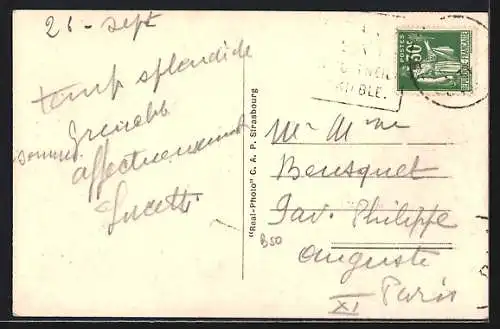 26 - Sept
temps splendide
affectueusement
Lucette
"Real-Photo" C. A. P. Strasbourg
B50
POSTES
50c
REPUBLIQUE FRANÇAISE
BLE.
Mr Mme
Bousquet
7 av. Philippe
Auguste
XI Paris